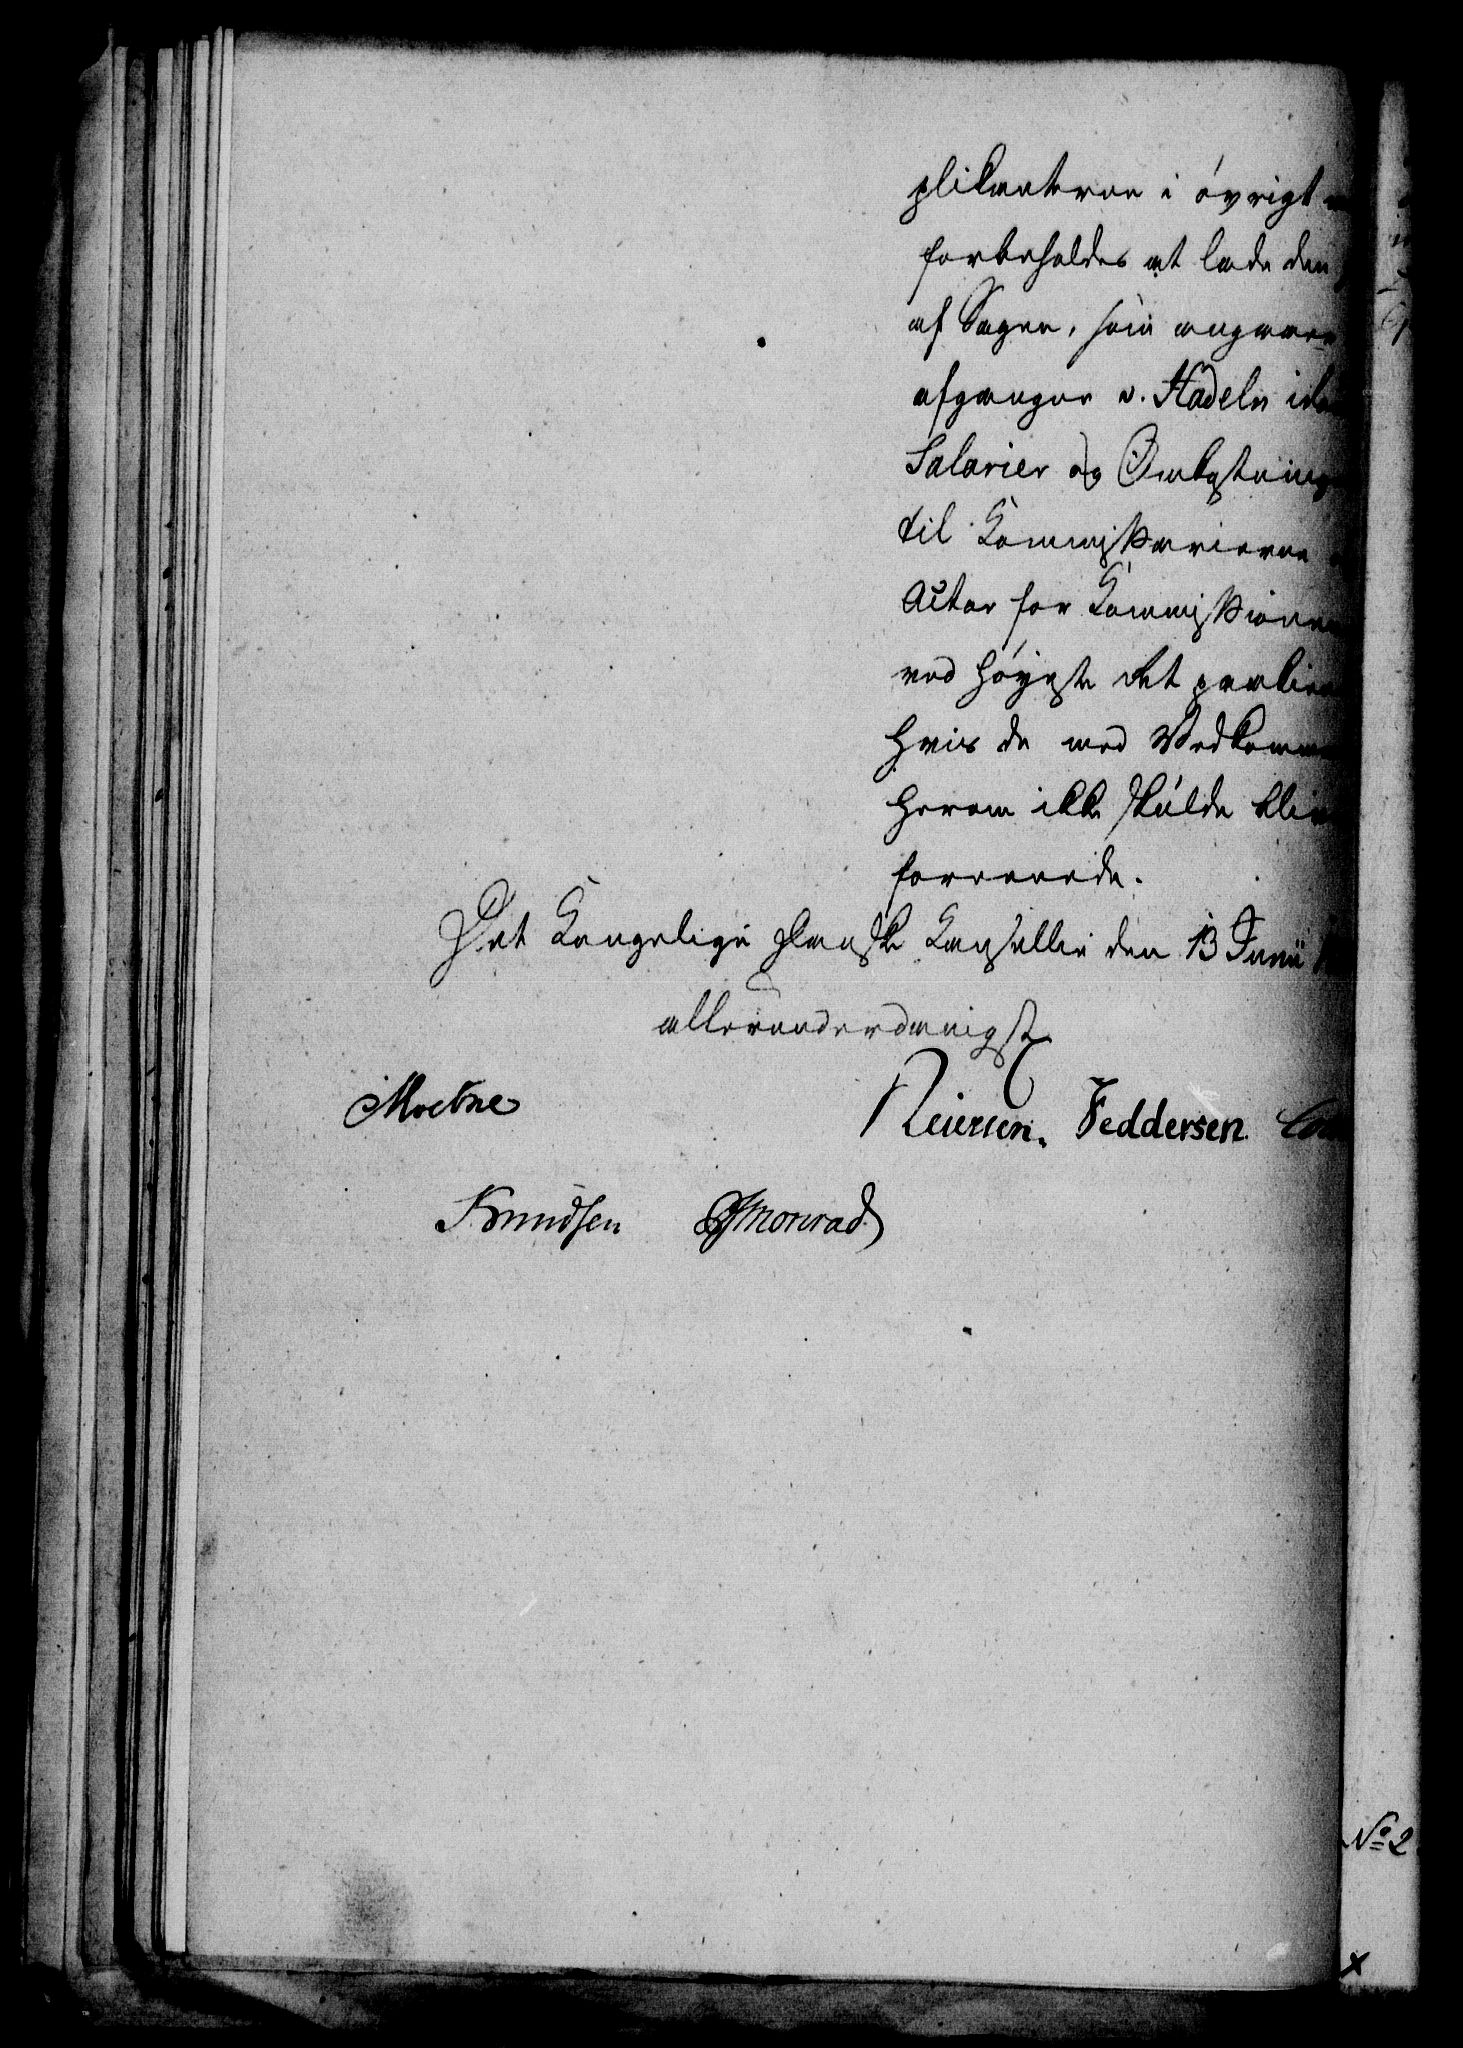 plikanterne i övrigt
forbeholdes at lade den
af Sagen, som angaaer
afgangne v. Hadeln
Salarier og Omkostninger
til Kommissarierne
Actor for Kommissionen
ved Höyeste Ret
hvis de med Vedkommen
herom ikke skulde blive
foreenede.
Det Kongelige danske Kancellie den 13 Junii
allerunderdanigst
Moltke
Reiersen. Feddersen.
Knudsen Monrad
No 2